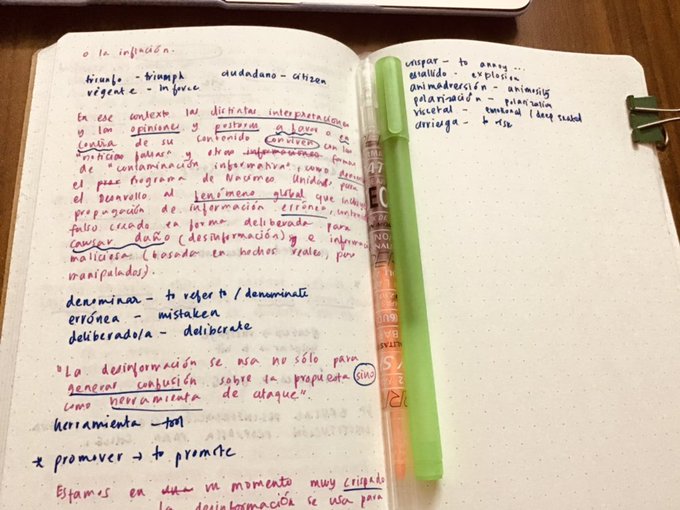 o la inflación.
triunfo - triumph ciudadano - citizen
vigente - in force
En ese contexto las distintas interpretaciones
y las opiniones y posturas a favor o en
contra de su contenido conviven con las
"noticias falsas" y otras formas
de "contaminación informativa", como
el Programa de Naciones Unidas para
el Desarrollo al fenómeno global que
propagación de información errónea,
falso creado en forma deliberada para
causar daño (desinformación) y e
maliciosa (basada en hechos reales, pero
manipulados).
denominar - to refer to / denominate
errónea - mistaken
deliberado/a - deliberate
"La desinformación se usa no sólo para
generar confusión sobre la propuesta sino
como herramienta de ataque".
herramienta - tool
* promover → to promote
Estamos en un momento muy crispado
la desinformación se usa para
crispar - to annoy ...
estallido - explosion
animadversión - animosity
polarización - polarization
visceral - emotional / deep seated
arriesga - to risk